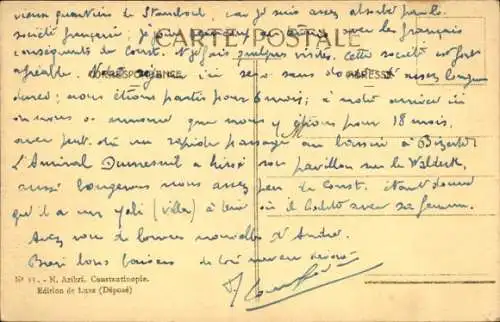 vieux quartiers de Stamboul, car je suis assez absorbé par la
société française, je
CARTE POSTALE
avec les français
conséquents de Const. Je fais quelques visites. Cette société est fort
agréable. Notre séjour ici sera sans doute d'assez longue
CORRESPONDANCE
ADRESSE
durée; nous étions partis pour 6 mois; à notre arrivée ici
on nous a annoncé que nous y étions pour 18 mois,
avec peut-être un rapide passage au bassin à Bizerte.
L'Amiral Dumesnil a hissé son pavillon sur le Waldeck,
aussi bougerons nous assez peu de Const. étant donné
qu'il a un yali (villa) à où il habite avec sa femme.
Avez vous de bonnes nouvelles d'André.
Bien bons baisers de ton neveu
Nº 11. - N. Aribri. Constantinople.
Edition de Luxe (Déposé)